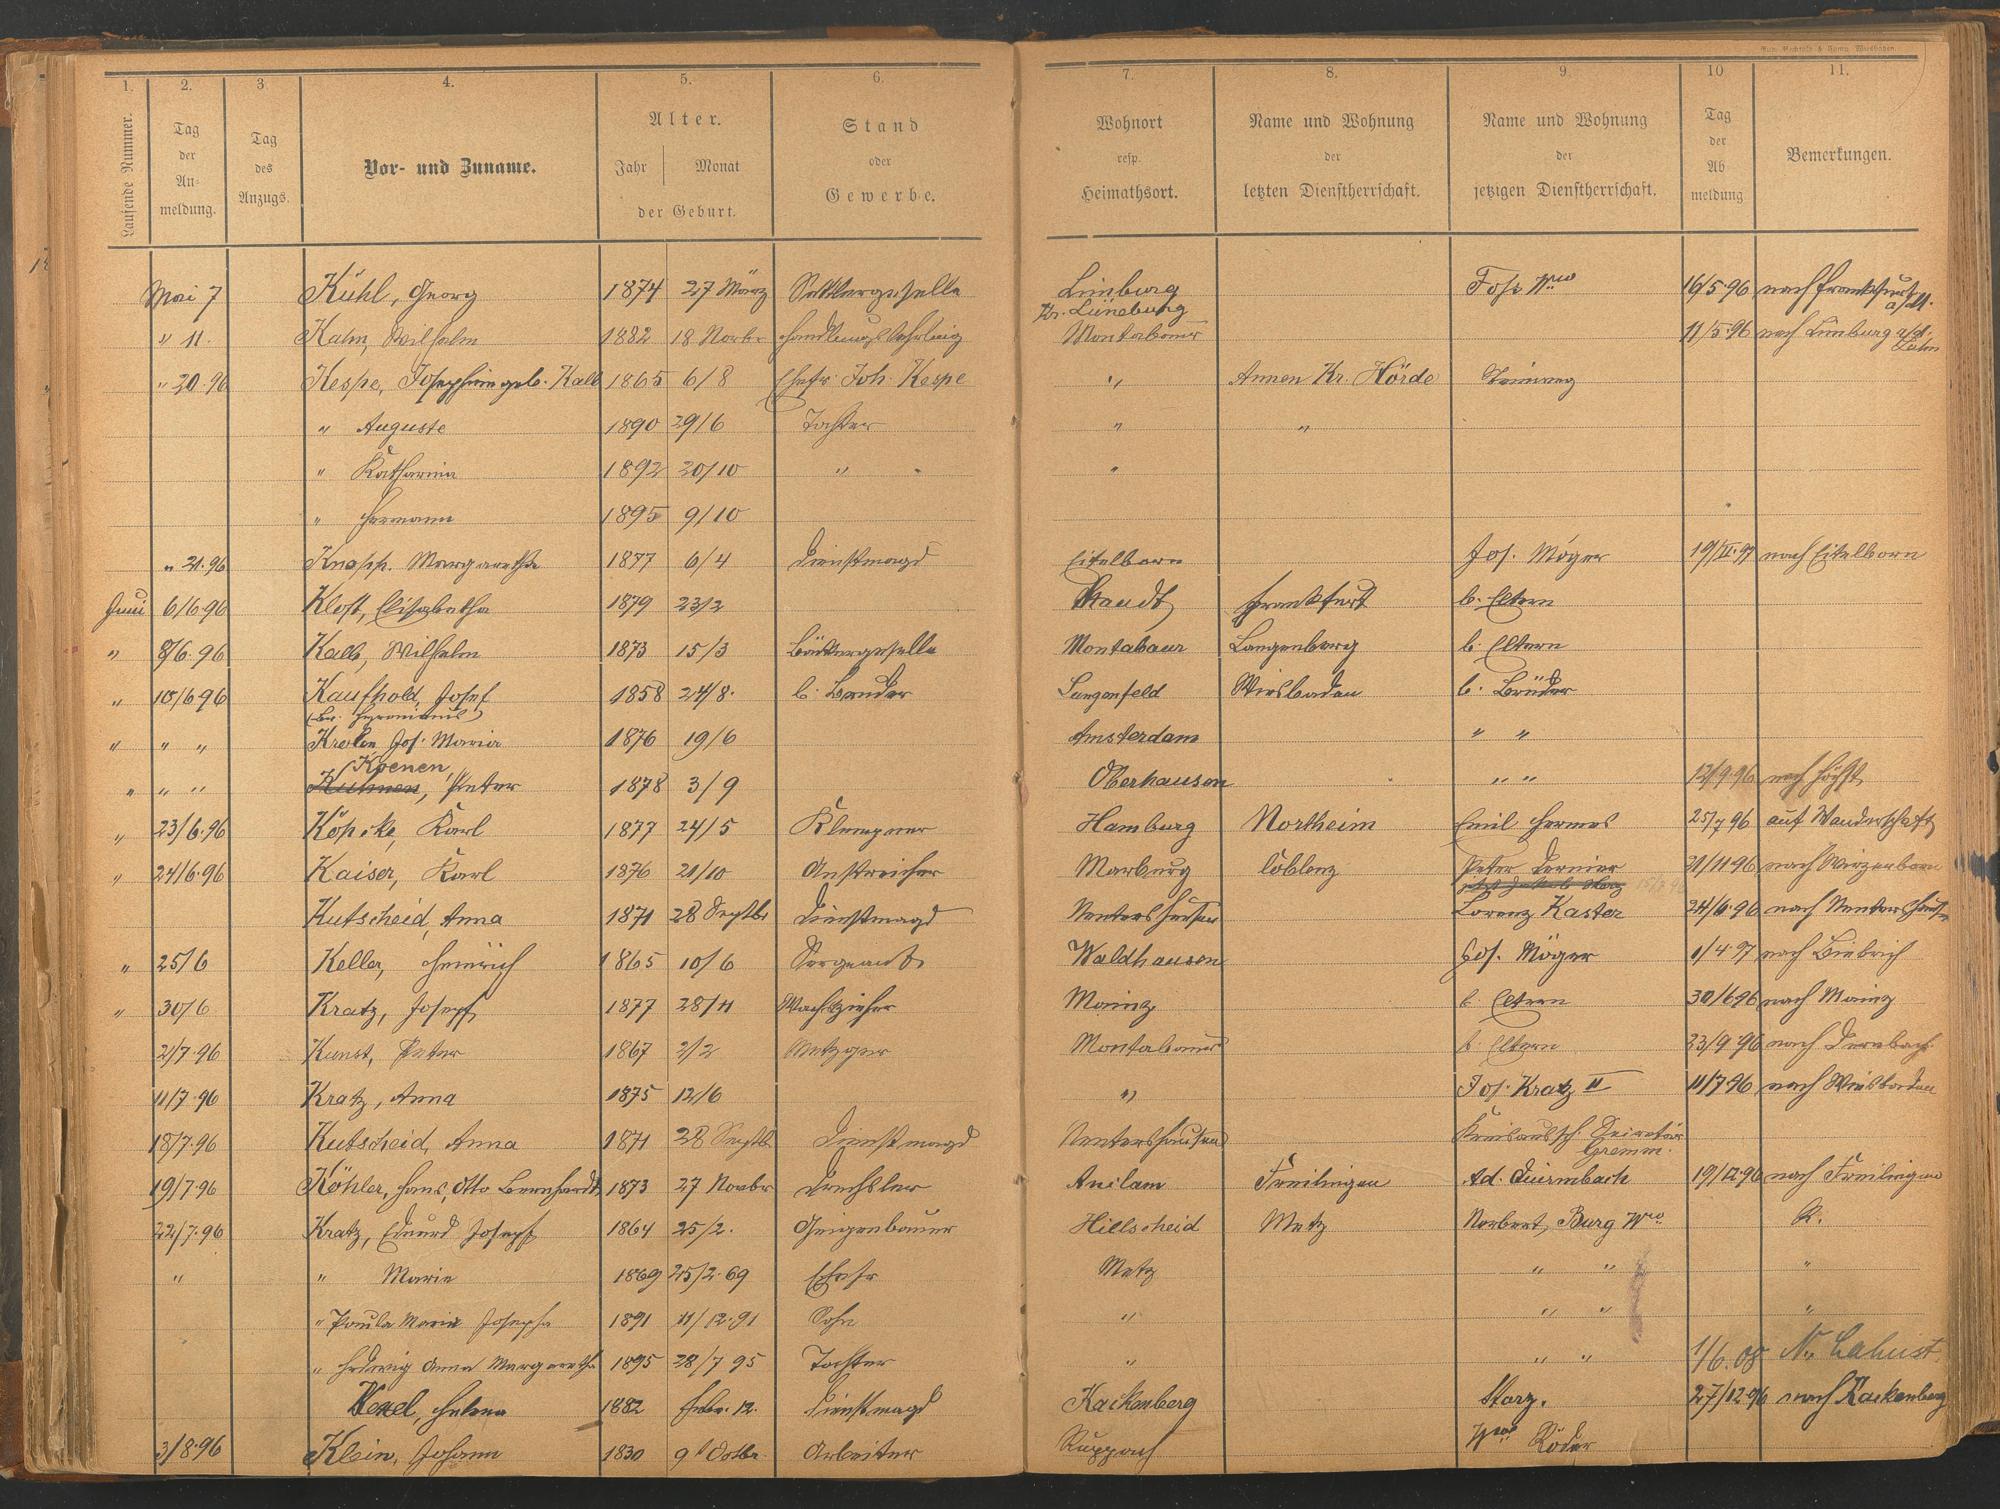 1. 2. 3 4. 5. 6.
Laufende Nummer. Tag der An- meldung. Tag des Anzugs. Vor- und Zuname. Alter. Jahr Monat der Geburt. Stand oder Gewerbe.
7. 8. 9 10 11.
Wohnort resp. Heimathsort. Name und Wohnung der letzten Dienstherrschaft. Name und Wohnung der jetzigen Dienstherrschaft. Tag der Ab meldung Bemerkungen.
Mai 7 Kühl, Georg 1874 27 März Sattlergeselle Limburg 16/5 96 nach Frankfurt a/M.
Kr. Lüneburg
" 11. Kahn, Wilhelm 1882 18 Novbr Handlungslehrling Montabaur 11/5 96 nach Limburg a/d. Lahn
" 20. 96 Kespe, Josephine geb. Kalb 1865 6/8 Ehefr. Joh. Kespe " Annen Kr. Hörde Steinweg
" Auguste 1890 29/6 Tochter " "
" Katharina 1892 20/10 " "
" Hermann 1895 9/10
" 21. 96 Knopp. Margaretha 1877 6/4 Dienstmagd Eitelborn Jos. Möger nach Eitelborn
Juni 6/6 96 Elisabetha 1879 23/2 Staudt Frankfurt b. Eltern
" 8/6. 96 Kalb, Wilhelm 1873 15/3 Bäckergeselle Montabaur Langenberg b. Eltern
" 10/6 96 Kaufhold, Josef 1858 24/8. Langenfeld Wiesbaden b. Brüder
(Br. Hyronimus)
" " " Jos. Maria 1876 19/6 Amsterdam " "
Koenen
" " " Kuhnen, Peter 1878 3/9 Oberhausen " " 12/9 96 nach Höchst
" 23/6. 96 Köpcke, Karl 1877 24/5 Klempner Hamburg Northeim Emil Hermes 25/7 96 auf Wanderschaft
" 24/6. 96 Kaiser, Karl 1876 21/10 Anstreicher Marburg Coblenz Peter 21/11 96 nach Wirzenborn
Kutscheid, Anna 1871 28 Septbr Dienstmagd Nentershausen Lorenz Kaster 24/6. 96 nach Nentershausen
" 25/6 Keller, Heinrich 1865 10/6 Sergeant Waldhausen Jos. Möger 1/4 97 nach Biebrich
" 30/6 Kratz, Joseph 1877 28/11 Wachszieher Mainz b. Eltern 30/6 96 nach Mainz
2/7. 96 Kunst, Peter 1867 2/2 Metzger Montabaur b. Eltern 23/9. 96 nach Dernbach
11/7. 96 Kratz, Anna 1875 12/6 " Jos. Kratz II 11/7 96 nach Wiesbaden
18/7. 96 Kutscheid, Anna 1871 28 Septbr. Dienstmagd Nentershausen Kreisaussch. Secretär
Gremm.
19/7. 96 Köhler, Hans, Otto Bernhardt 1873 27 Novbr Drechsler Freilingen Ad. 19/12. 96 nach Freilingen
22/7. 96 Kratz, Eduard Joseph 1864 25/2. Geigenbauer Hillscheid Metz Norbert, Burg Wwe. R.
" " Marie 1869 25/2. 69 Ehefr Metz " " "
" Paula Maria Josepha 1891 11/12. 91 Sohn " " " "
" Hedwig Anna Margaretha 1895 28/7 95 Tochter " " " 1/6. 08
Helena 1882 Febr. 12. Dienstmagd Kackenberg Storz. 27/12. 96 nach Kackenberg
3/8. 96 Klein, Johann 1830 9t Octbr. Arbeiter Ruppach Wwe Röder